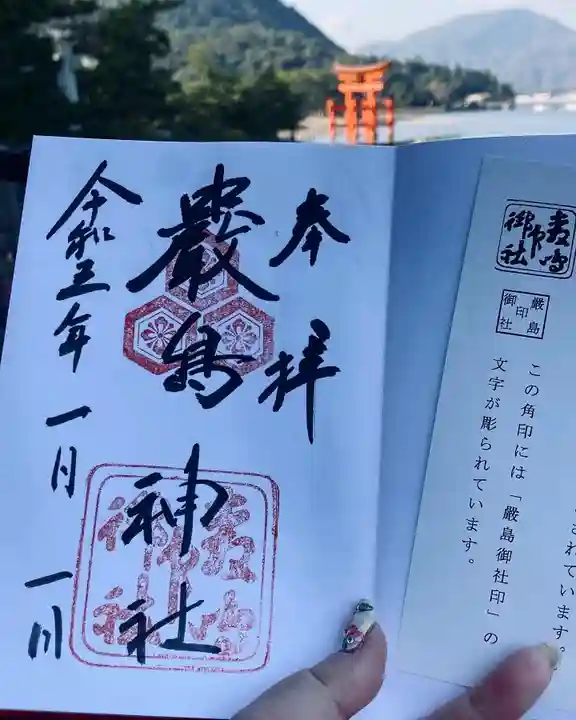 奉拝
嚴島神社
令和三年一月
一日
嚴島
印
御社
されています。
この角印には「嚴島御社印」の
文字が彫られています。